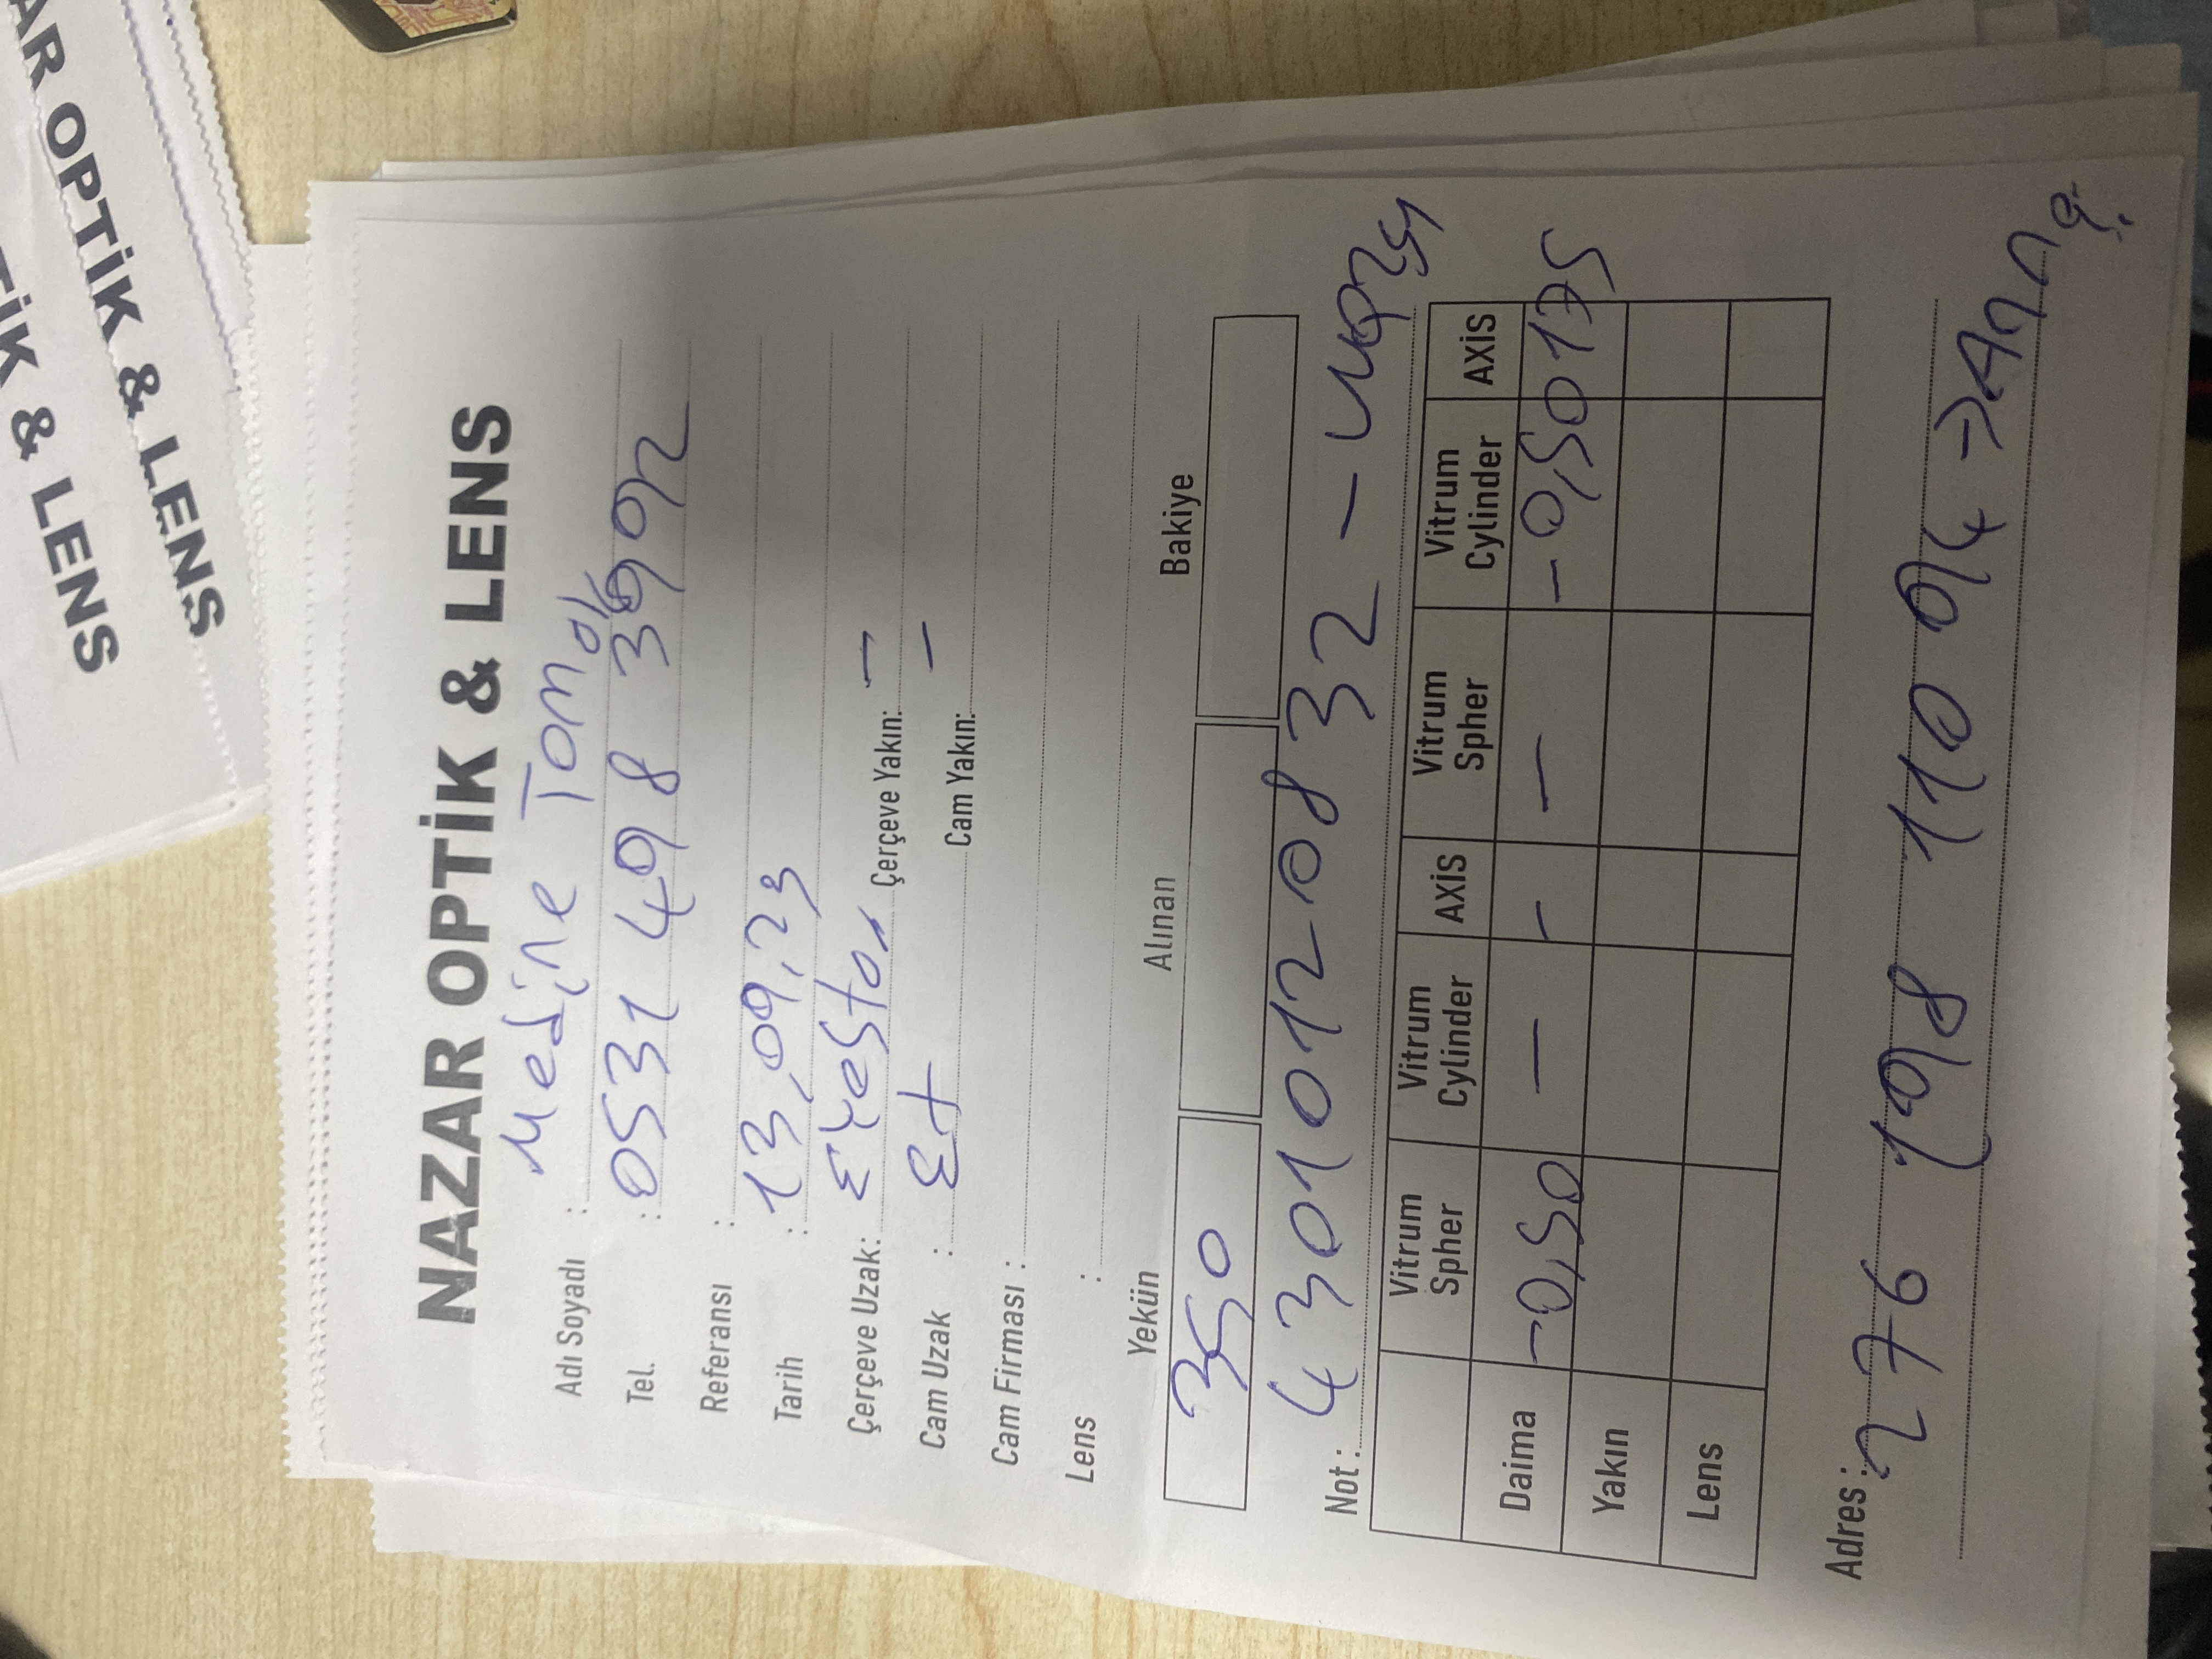 TİK & LENS
AR OPTİK & LENS
NAZAR OPTİK & LENS
Adı Soyadı : Medine Tomak
Tel. : 0531 498 3992
Referansı :
Tarih : 13,09,23
Çerçeve Uzak: Eyestar Çerçeve Yakın: -
Cam Uzak : Ex Cam Yakın: -
Cam Firması :
Lens :
Yekün Alınan Bakiye
350
Not : 43010120832 -
Vitrum Spher Vitrum Cylinder AXİS Vitrum Spher Vitrum Cylinder AXİS
Daima -0,50 - - - -0,50 175
Yakın
Lens
Adres : 276 198 110 94 → Anne